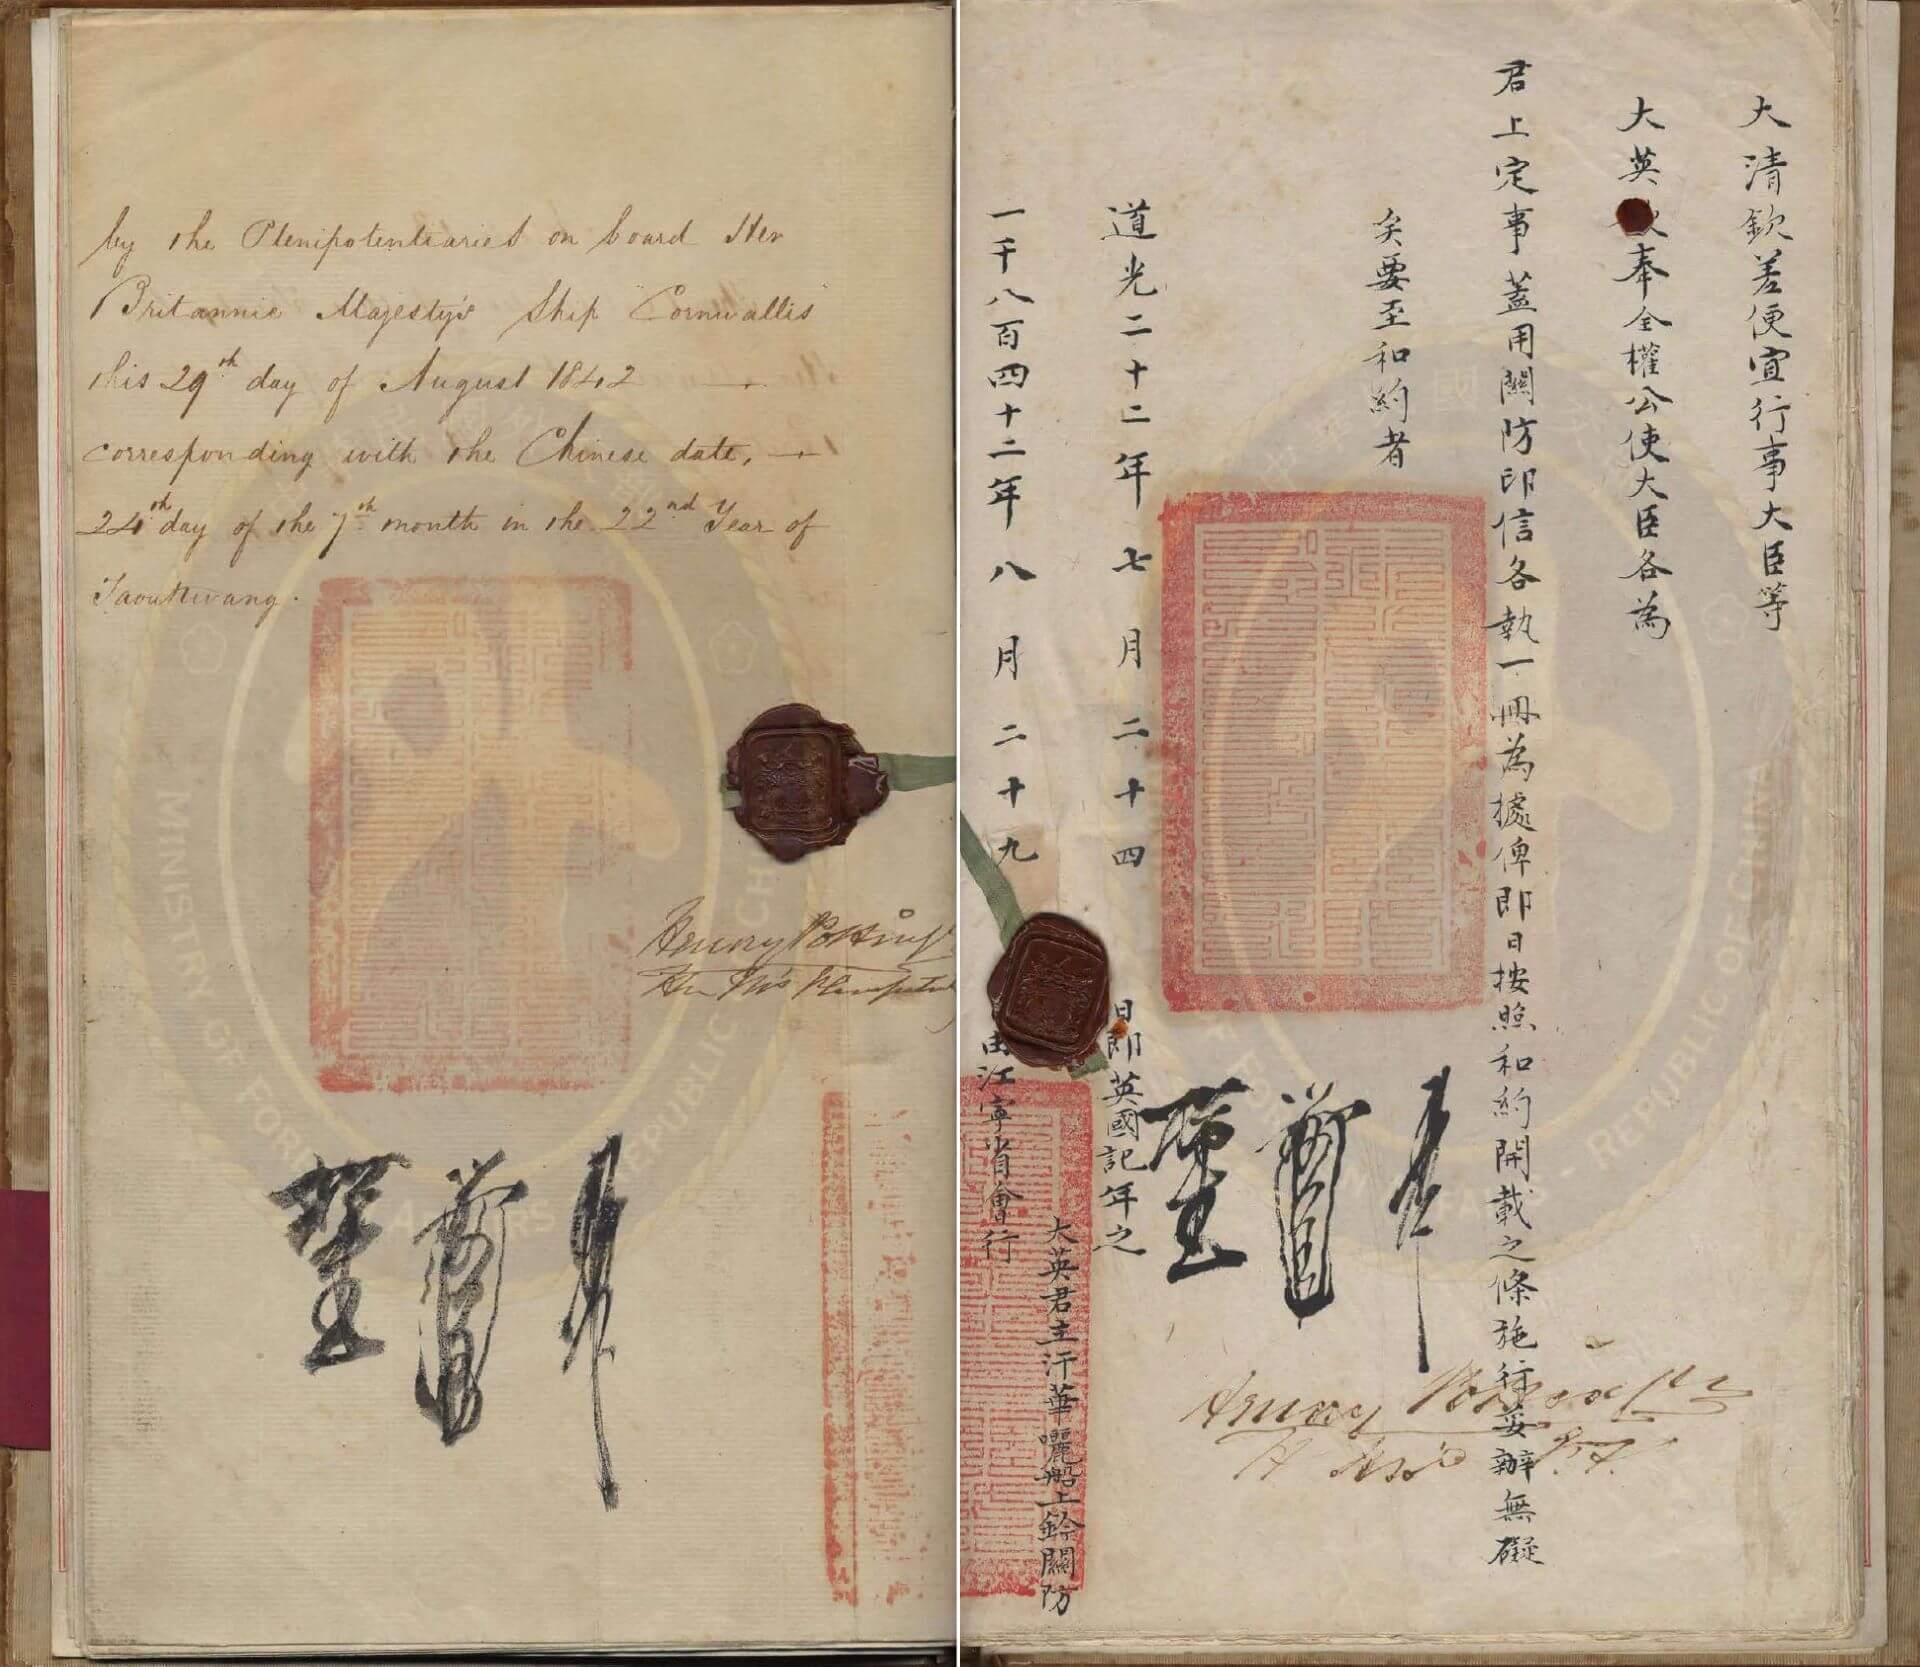 by the Plenipotentiaries on board Her
Britannic Majesty's Ship Cornwallis
this 29th day of August 1842
corresponding with the Chinese date,
24th day of the 7th month in the 22nd Year of
Taoukwang.
Henry Potting
Her M's Plenipoten
大清欽差便宜行事大臣等
大英 奉全權公使大臣各為
君上定事蓋用關防印信各執一冊為據俾即日按照和約開載之條施行妥辦無礙
矣要至和約者
道光二十二年七月二十四日即英國記年之
一千八百四十二年八月二十九 由江寧省會行
大英君主汗華囇船上鈐關防
Henry Pottinger
MINISTRY OF FOREIGN AFFAIRS
REPUBLIC OF CHINA
MINISTRY OF FOREIGN AFFAIRS
REPUBLIC OF CHINA